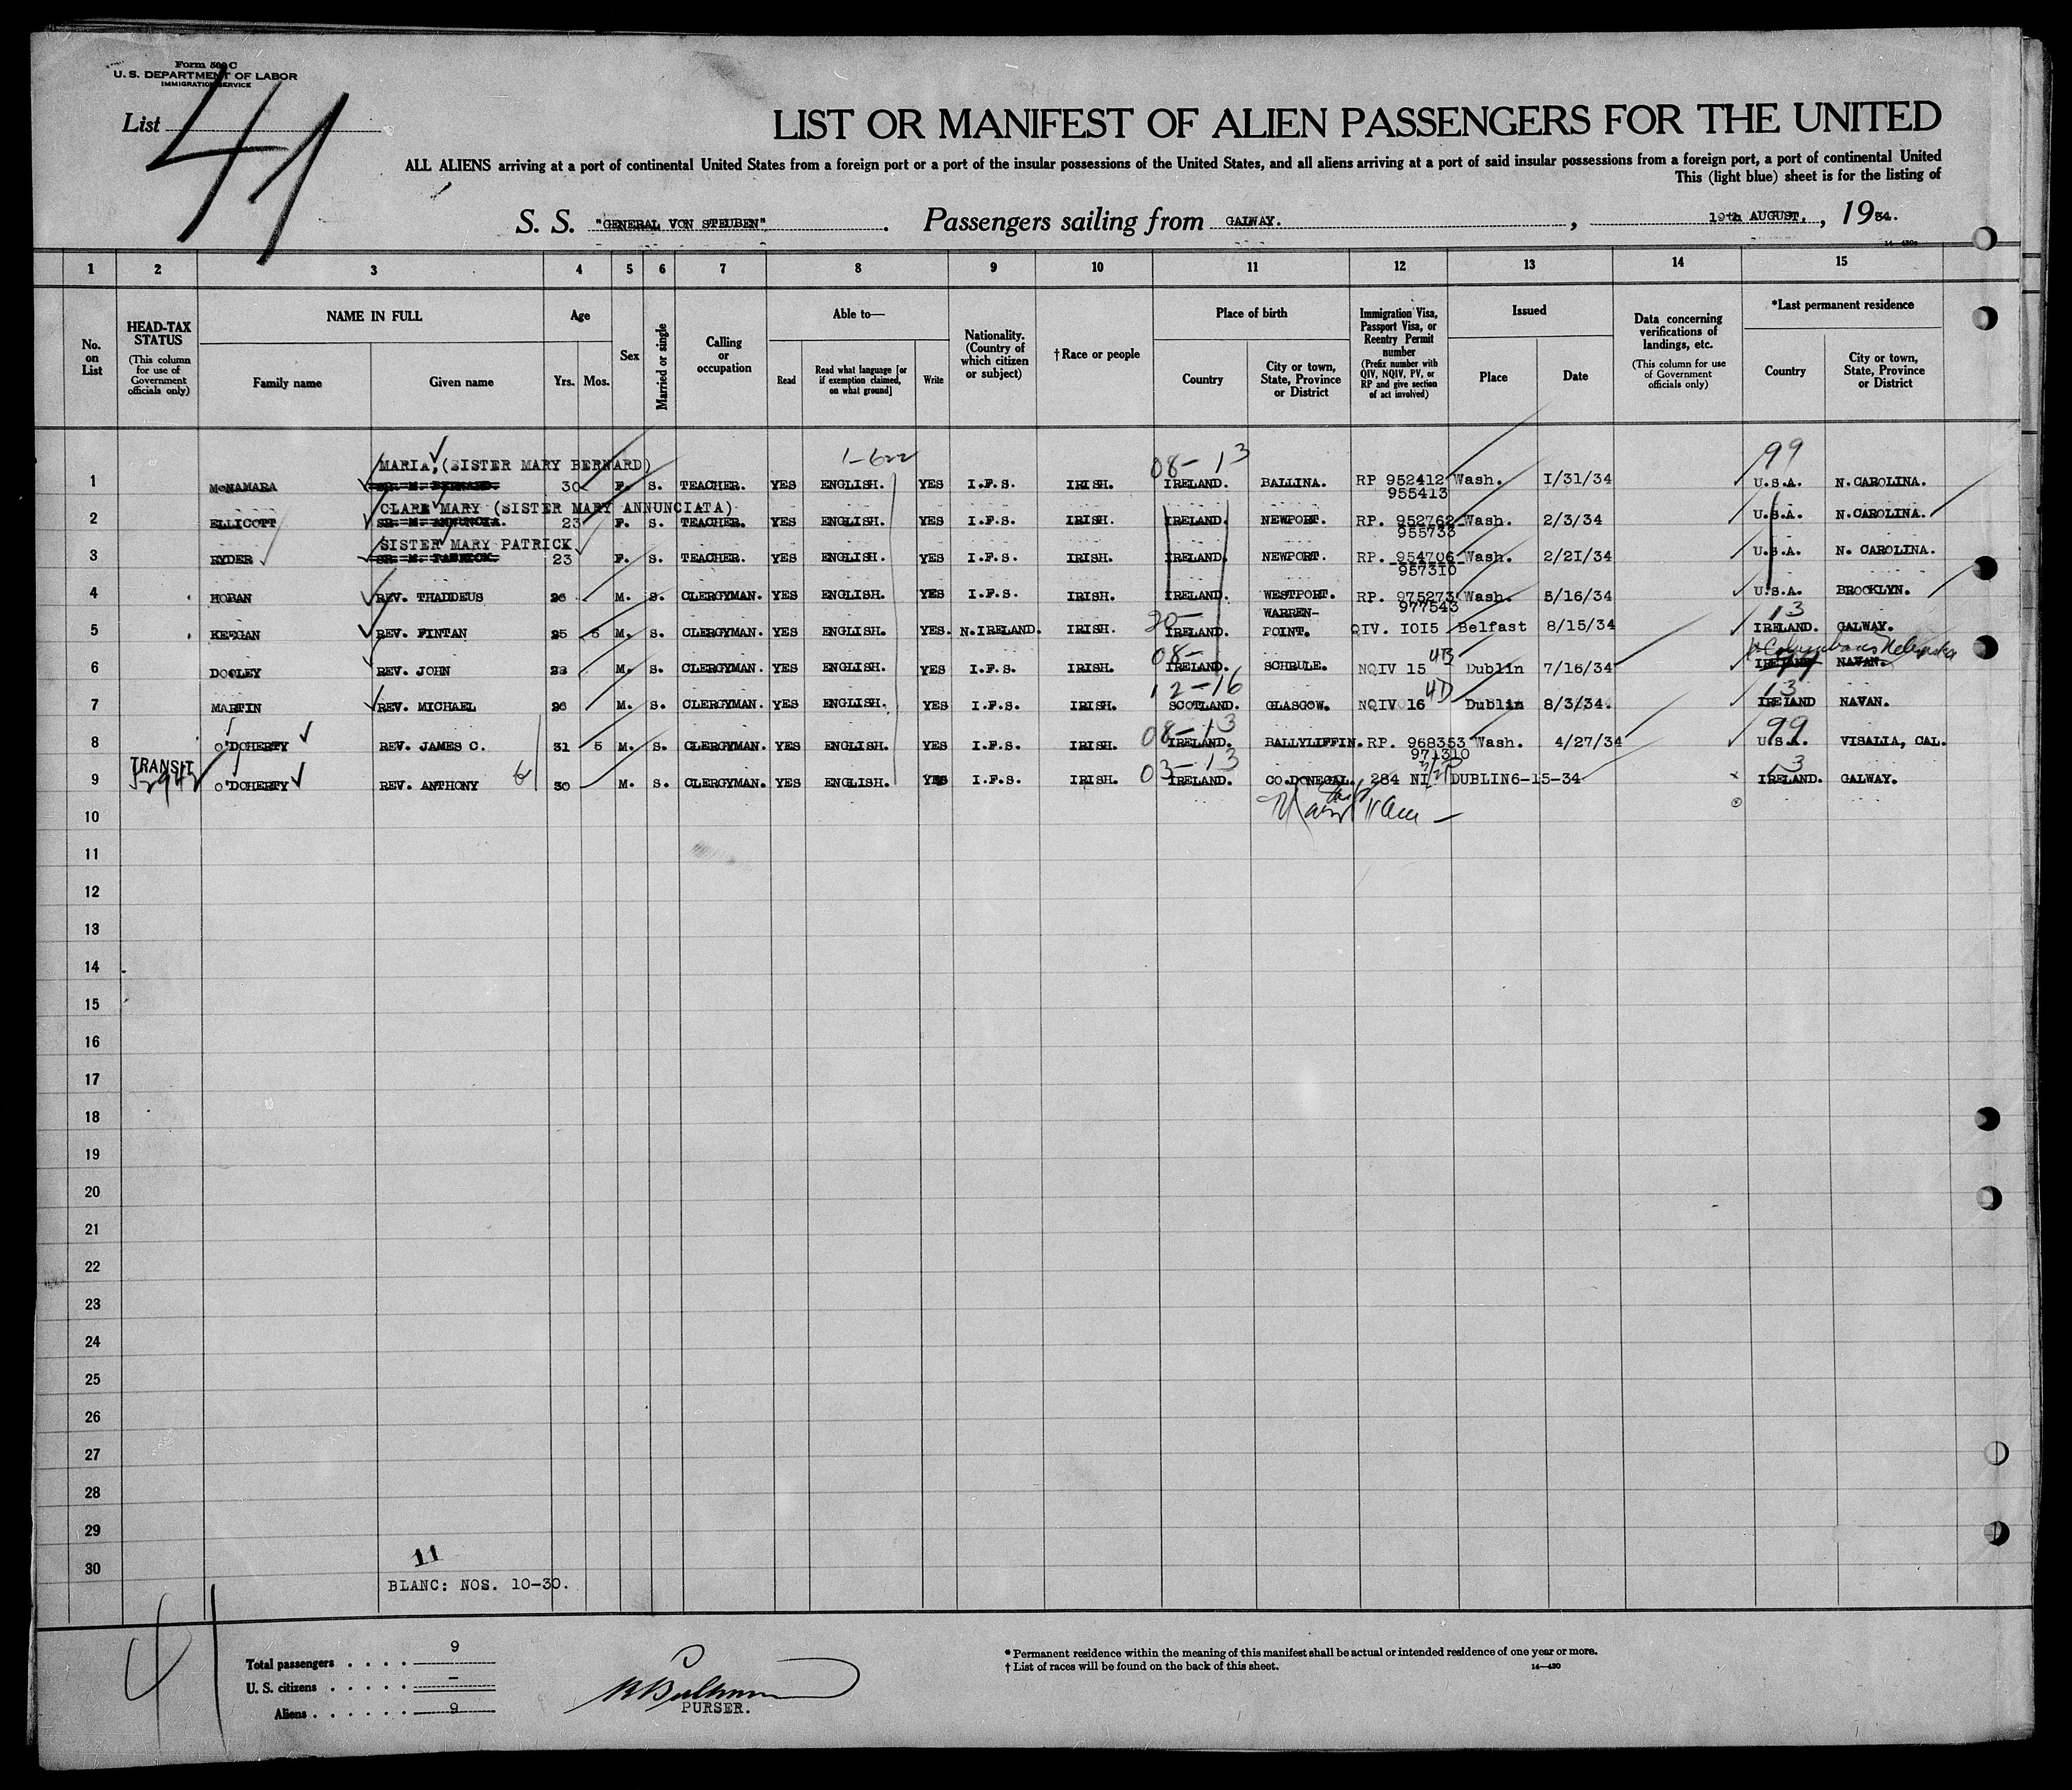 Form 500 C
U. S. DEPARTMENT OF LABOR
IMMIGRATION SERVICE
List 41
LIST OR MANIFEST OF ALIEN PASSENGERS FOR THE UNITED
ALL ALIENS arriving at a port of continental United States from a foreign port or a port of the insular possessions of the United States, and all aliens arriving at a port of said insular possessions from a foreign port, a port of continental United
This (light blue) sheet is for the listing of
S. S. "GENERAL VON STEUBEN" . Passengers sailing from GALWAY. , 19th AUGUST, , 1934.
14—430a
1 2 3 4 5 6 7 8 9 10 11 12 13 14 15
No. on List
HEAD-TAX STATUS
(This column for use of Government officials only)
NAME IN FULL
Family name Given name
Age
Yrs. Mos.
Sex
Married or single
Calling or occupation
Able to—
Read
Read what language [or if exemption claimed, on what ground]
Write
Nationality. (Country of which citizen or subject)
†Race or people
Place of birth
Country
City or town, State, Province or District
Immigration Visa, Passport Visa, or Reentry Permit number
(Prefix number with QIV, NQIV, PV, or RP and give section of act involved)
Issued
Place Date
Data concerning verifications of landings, etc.
(This column for use of Government officials only)
*Last permanent residence
Country
City or town, State, Province or District
1-622 08-13 99
MARIA, (SISTER MARY BERNARD)
1 McNAMARA SR. M. BERNARD. 30 F. S. TEACHER. YES ENGLISH. YES I.F.S. IRISH. IRELAND. BALLINA. RP 952412 Wash. 1/31/34 U.S.A. N. CAROLINA.
955413
CLARE MARY (SISTER MARY ANNUNCIATA)
2 ELLICOTT SR. M. ANNUNCIA. 23 F. S. TEACHER. YES ENGLISH. YES I.F.S. IRISH. IRELAND. NEWPORT. RP. 952762 Wash. 2/3/34 U.S.A. N. CAROLINA.
955733
SISTER MARY PATRICK
3 RYDER SR. M. PATRICK. 23 F. S. TEACHER. YES ENGLISH. YES I.F.S. IRISH. IRELAND. NEWPORT. RP. 954706 Wash. 2/21/34 U.S.A. N. CAROLINA.
957310
4 HOBAN REV. THADDEUS 26 M. S. CLERGYMAN. YES ENGLISH. YES I.F.S. IRISH. IRELAND. WESTPORT. RP. 975273 Wash. 5/16/34 U.S.A. BROOKLYN.
977543
20- 13
5 KEEGAN REV. FINTAN 25 5 M. S. CLERGYMAN. YES ENGLISH. YES. N. IRELAND. IRISH. IRELAND. WARREN-POINT. QIV. 1015 Belfast 8/15/34 IRELAND. GALWAY.
08- 4D Columbans Nebraska
6 DOOLEY REV. JOHN 23 M. S. CLERGYMAN. YES ENGLISH. YES I.F.S. IRISH. IRELAND. SCHRULE. NQIV 15 Dublin 7/16/34 IRELAND NAVAN.
12-16 4D 13
7 MARTIN REV. MICHAEL 26 M. S. CLERGYMAN. YES ENGLISH. YES I.F.S. IRISH. SCOTLAND. GLASGOW. NQIV 16 Dublin 8/3/34. IRELAND NAVAN.
08-13 99
8 O'DOHERTY REV. JAMES C. 31 5 M. S. CLERGYMAN. YES ENGLISH. YES I.F.S. IRISH. IRELAND. BALLYLIFFIN. RP. 968353 Wash. 4/27/34 U.S.A. VISALIA, CAL.
971310
TRANSIT 03-13 13
9 O'DOHERTY REV. ANTHONY 30 M. S. CLERGYMAN. YES ENGLISH. YES I.F.S. IRISH. IRELAND. CO. DONEGAL. 284 NI DUBLIN 6-15-34 IRELAND. GALWAY.
10
11
12
13
14
15
16
17
18
19
20
21
22
23
24
25
26
27
28
29
30
11
BLANC: NOS. 10-30.
41
Total passengers . . . . 9
U. S. citizens . . . . . –
Aliens . . . . . . 9
PURSER.
* Permanent residence within the meaning of this manifest shall be actual or intended residence of one year or more.
† List of races will be found on the back of this sheet.
14—430